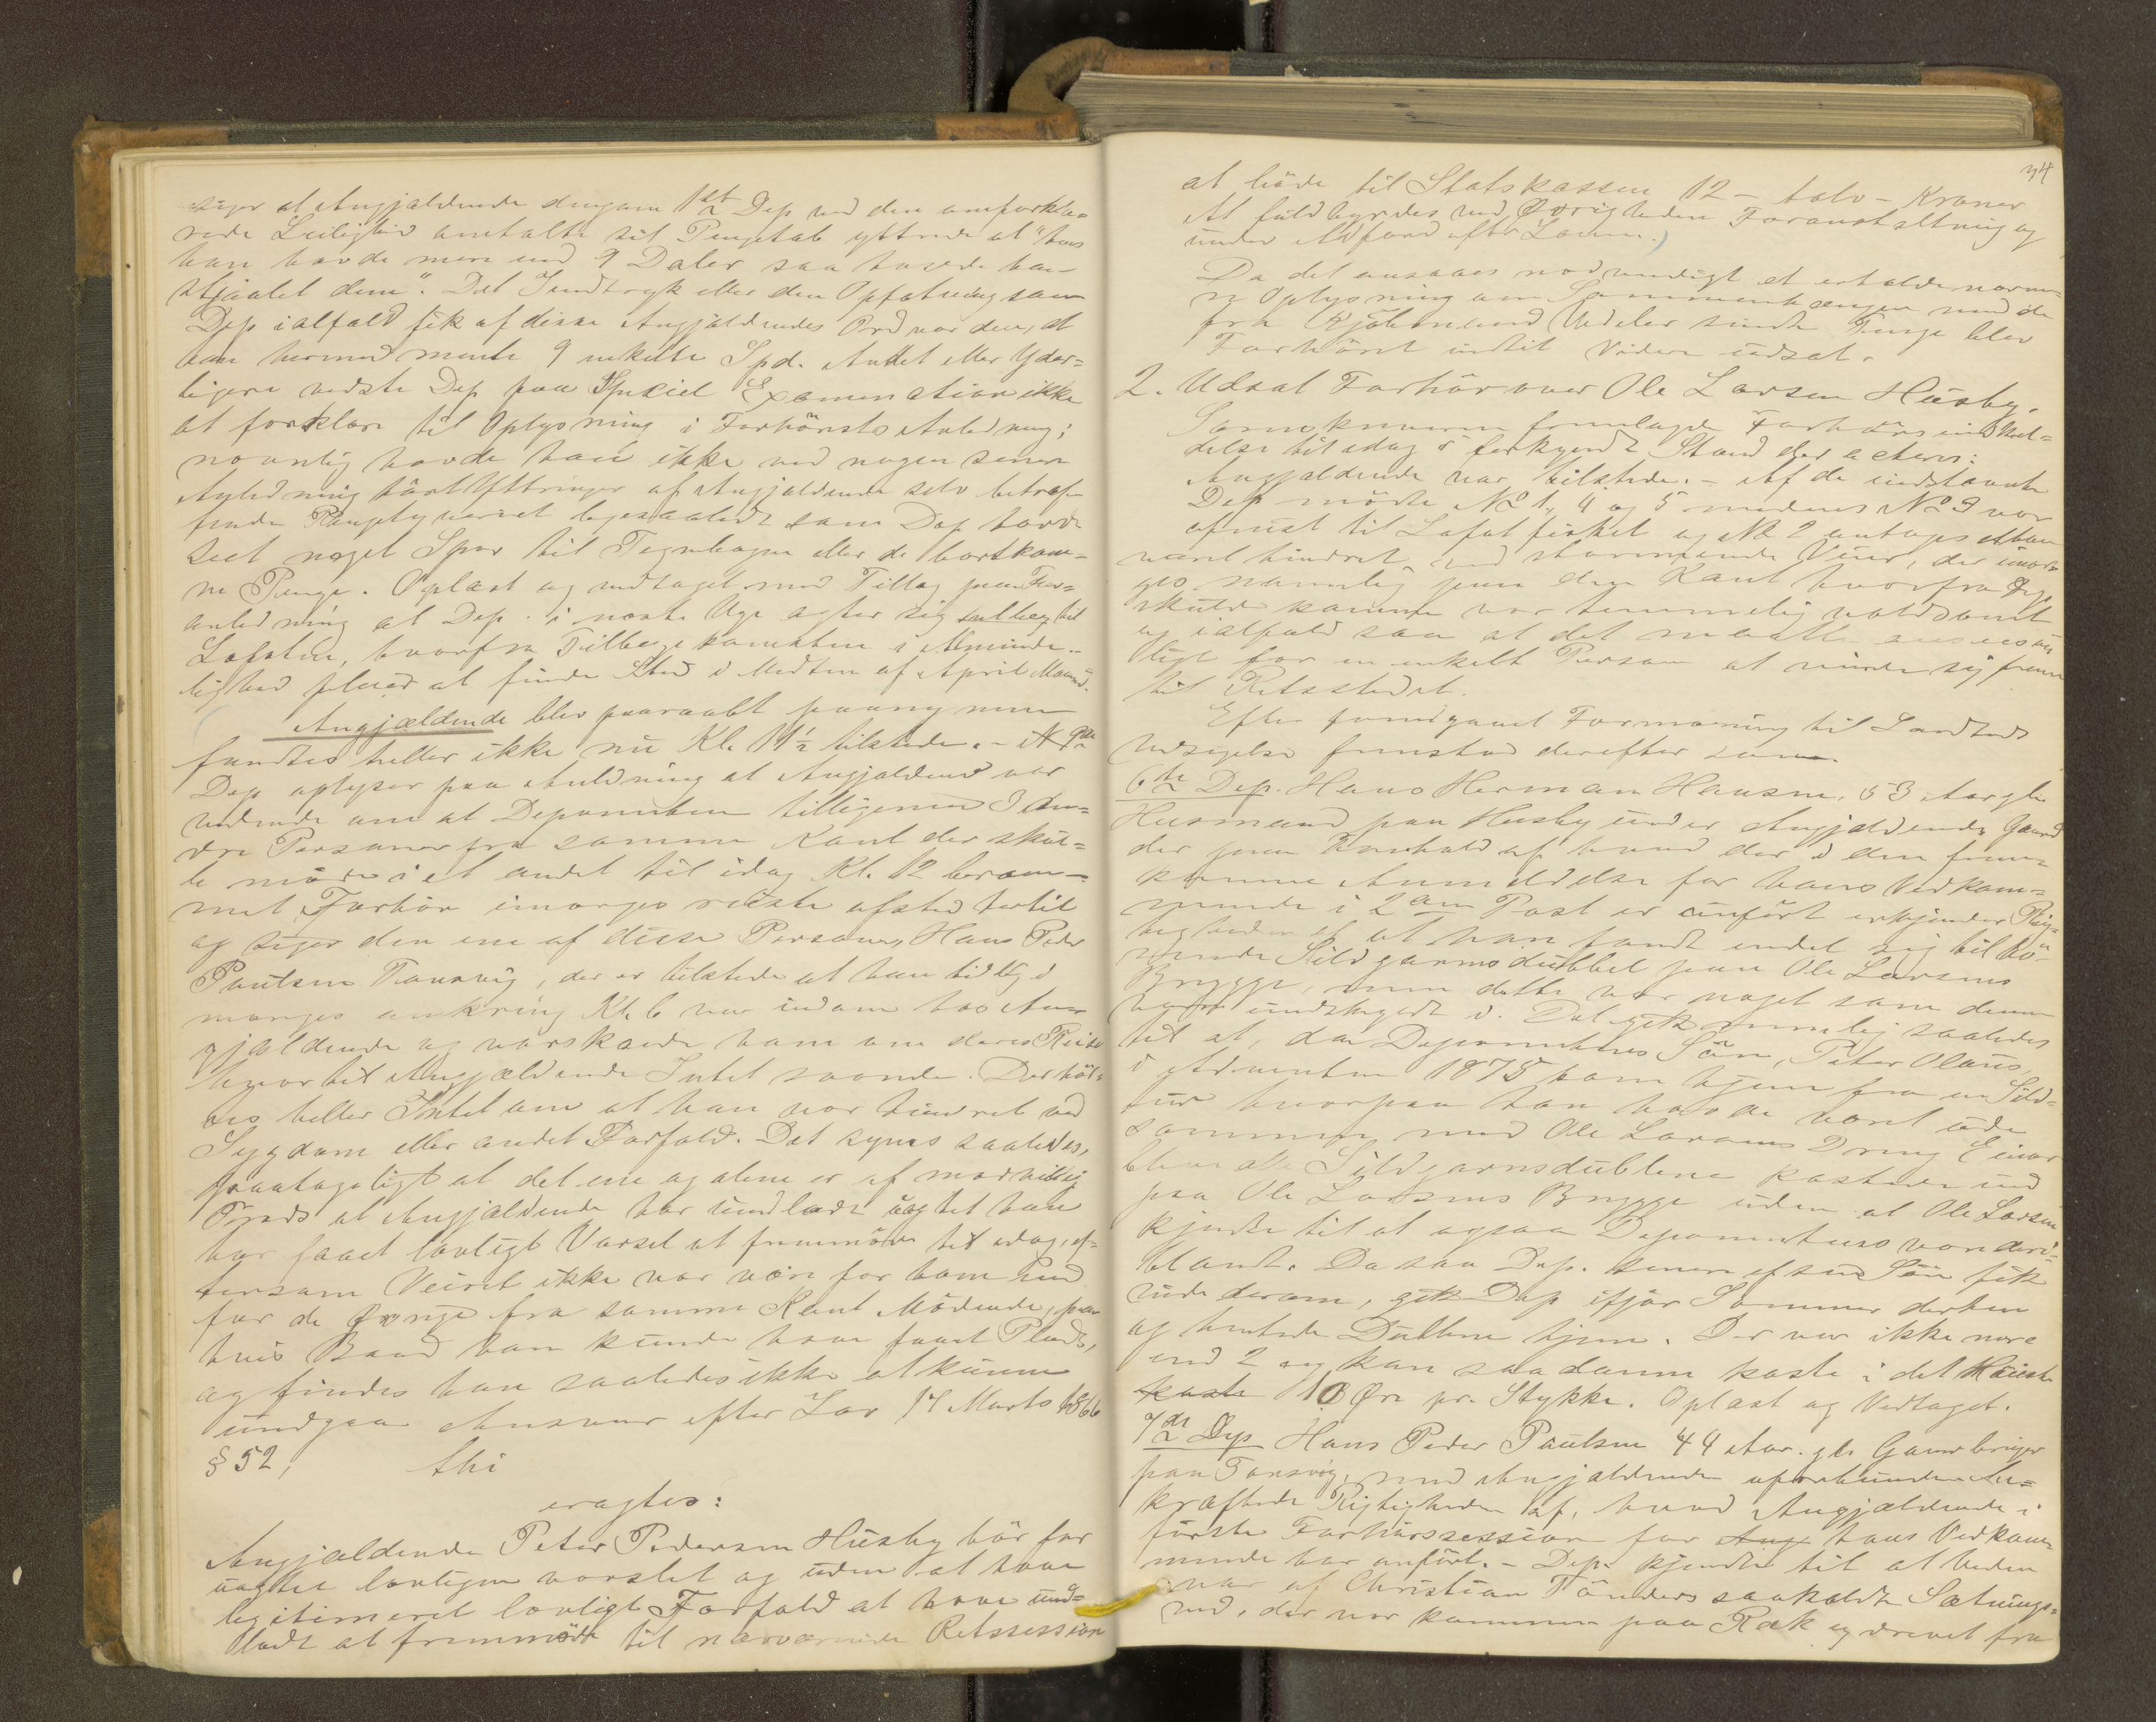 siger at Angjældende dengang 1ste Dep ved den omforkla-
rede Leilighed omtalte sit Pengetab yttrede at "hvis
han havde mere end 9 Daler saa havde han
stjaalet dem". Det Indtryk eller den Opfatning som
Dep ialfald fik af disse Angjældendes Ord var den, at
han hermed mente 9 enkelte Spd. Andet eller Yder-
ligere vidste Dep paa Speciel Examination ikke
at forklare til Oplysning i Forhørets Anledning;
navnlig havde han ikke ved nogen senere
Anledning hørt Yttringer af Angjældende selv betræf-
fende Pengetyveriet ligesaalidt som Dep havde
seet noget Spor til Tegnebogen eller de bortkom-
ne Penge. Oplæst og vedtaget med Tillæg paa For-
anledning at Dep. i næste Uge agter sig til
Lofoten, hvorfra Tilbagekomsten i Alminde-
lighed pleier at finde Sted i Midten af April Maaned.
Angjældende blev paaraabt paany men
fandtes heller ikke nu Kl. 11½ tilstede. -
Dep oplyser paa Anledning at Angjældende var
vidende om at Deponenten tilligemed 3 An-
dre Personer fra samme Kant der skul-
le møde i et andet til idag Kl. 12 beram-
met Forhør imorges reiste afsted hertil
og siger den ene af disse Personer, Hans Peder
Paulsen Tonsvig, der er tilstede at han tidlig i
morges omkring Kl. 6 var indom hos An-
gjældende og varskoede ham om deres Reise
hvortil Angjældende Intet svarede. Der hør-
tes heller Intet om at han var hindret ved
Sygdom eller andet Forfald. Det synes saaledes,
paatageligt at det ene og alene er af modvillig
Trods at Angjældende har undladt uagtet han
har faaet lovligt Varsel at fremmøde til idag, ef-
tersom Veiret ikke var værre for ham end
for de øvrige fra samme Kant Mødende, paa
hvis Baad han kunde have faaet Plads,
og findes han saaledes ikke at kunne
undgaa Ansvar efter Lov 17 Marts 1866
§ 52, thi
eragtes:
Angjældende Peter Pedersen Husby bør for
uagtet lovligen varslet og uden at have
legitimeret lovligt Forfald at have und-
ladt at fremmøde til nærværende Retssession
34
at bøde til Statskassen 12 - tolv - Kroner
At fuldbyrdes ved Øvrighedens Foranstaltning og
under Adfærd efter Loven.)
Da det ansaaes nødvendigt at erholde nærme-
re Oplysning om Sammenhængen med de
fra Kjøbmand sendte Penge blev
Forhøret indtil Videre udsat.
2. Udsat Forhør over Ole Larsen Husby.
Sorenskriveren fremlagde Forhørsindkal-
delse til idag i forkyndt Stand der acteres:
Angjældende var tilstede. - Af de indstævnte
Dep mødte No 1, 4 og 5 medens No 3 var
afreist til Lofotfisket og No 2 antages at have
været hindret ved stormende Veir, der imor-
ges navnlig paa den Kant hvorfra Dep
skulde komme var temmelig voldsomt
og ialfald saa at det maatte ansees
ligt for en enkelt Person at vinde sig frem
til Retsstedet.
Efter foregaaet Formaning til Sandheds
Udsigelse fremstod derefter som
6te Dep. Hans Herman Hansen, 53 Aar gl.
Husmand paa Husby under Angjældendes Gaard
der paa Forehold af hvad der i den frem-
komne Anmeldelse for hans Vedkom-
mende i 2den Post er anført erkjender Rig-
tigheden af at han fandt endel sig tilhø-
rende Sildgarnsdubbel paa Ole Larsens
Brygge, men dette var noget som denne
var uindskyldt i. Det gik nemlig saaledes
til at, da Deponentens Søn, Peter Olaus,
i Adventen 1875 kom hjem fra en Sild-
tur hvorpaa han havde været ude
sammen med Ole Larsens Dreng Einar
bleve alle Sildgarnsdublene kastede ind
paa Ole Larsens Brygge uden at Ole Larsen
kjendte til at ogsaa Deponentens var deri-
blandt. Da saa Dep. senere af sin Søn fik
vide derom, gik Dep ifjor Sommer derhen
og hentede Dublene hjem. Der var ikke mere
end 2 og kan saadanne koste i det Høieste
koste 10 Øre pr. Stykke. Oplæst og Vedtaget.
7de Dep Hans Peder Paulsen 44 Aar. gl. Gaardbruger
paa Tonsvig, med Angjældende uforbunden be-
kræftede Rigtigheden af, hvad Angjældende i
første Forhørssession for Ang hans Vedkom-
mende har anført. - Dep. kjendte til at Veden
var af Christian Tønders saakaldte Sætnings-
ved, der var kommen paa Ræk og drevet fra